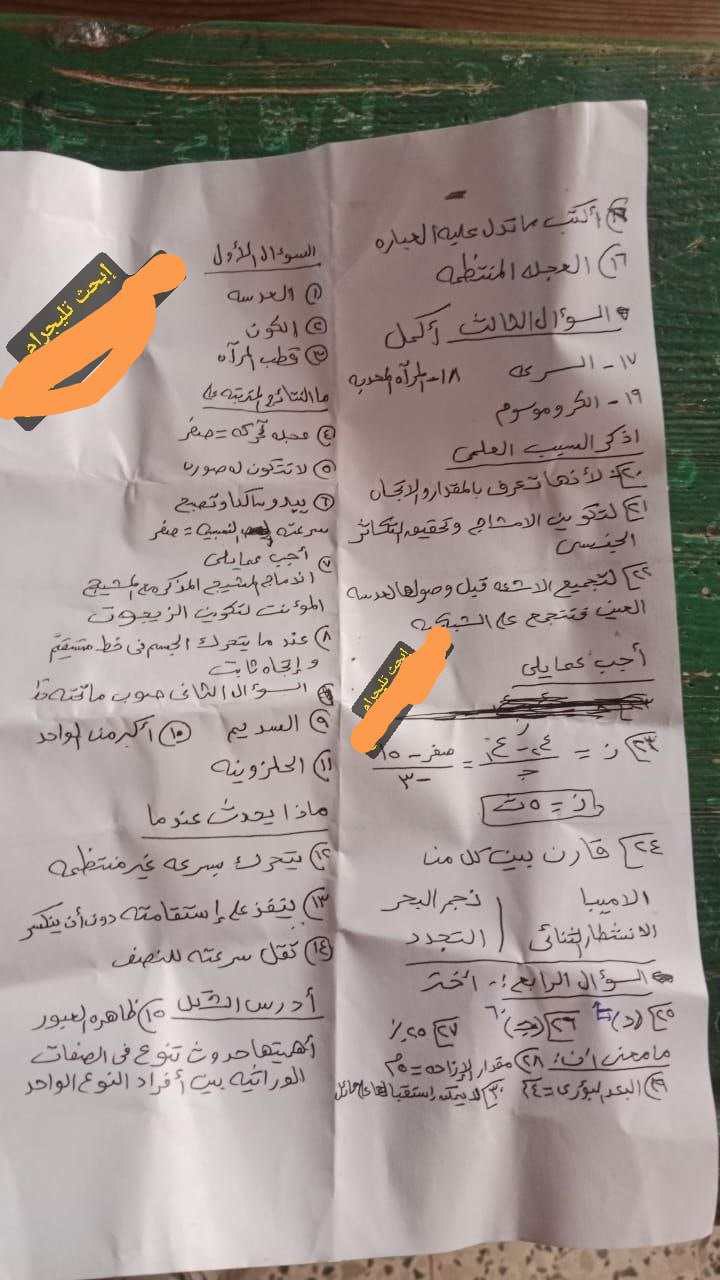 السؤال الأول
١) العدسه
٢) الكون
٣) قطب المرآه
ما النتائج المترتبه على
٤) عجله تحركه = صفر
٥) لا تتكون له صوره
٦) يبدو ساكنا وتصبح
سرعته النسبيه = صفر
أجب عمايلى
٧) اندماج المشيج المذكر مع المشيج
المؤنث لتكوين الزيجوت
٨) عند ما يتحرك الجسم فى خط مستقيم
و إتجاه ثابت
السؤال الثانى صوب ما تحته خط
٩) السديم ١٠) أكبر من الواحد
١١) الحلزونيه
ماذا يحدث عند ما
١٢) يتحرك بسرعه غير منتظمه
١٣) ينفذ على إستقامته دون أن ينكسر
١٤) تقل سرعته للنصف
أدرس الشكل ١٥) ظاهره العبور
أهميتها حدوث تنوع فى الصفات
الوراثيه بين أفراد النوع الواحد
أكتب ما تدل عليه العباره
١٦) العجله المنتظمه
السؤال الثالث أكمل
١٧- السرعه ١٨- المرآه المحدبه
١٩- الكروموسوم
اذكر السبب العلمى
٢٠) لأنها تعرف بالمقدار والاتجاه
٢١] لتكوين الامشاج وتحقيق التكاثر
الجنسى
٢٢] لتجميع الاشعه قبل وصولها لعدسه
العين فتتجمع على الشبكيه
أجب عمايلى
٢٣] ز = ع٢ - ع١ / جـ = صفر - ١٥ / -٣
ز = ٥ ث
٢٤] قارن بين كل من
الاميبا نجم البحر
الانشطار الثنائى التجدد
السؤال الرابع :- اختر
٢٥] (د) ٢٦] (جـ) ٢٧] ٢٥٪
ما معنى أن: ٢٨) مقدار الإزاحه = ٥م
٢٩) البعد البؤرى = ٢٤ ٣٠] لا يمكن استقبالها على حائل
إبحث تليجرام
إبحث تليجرام